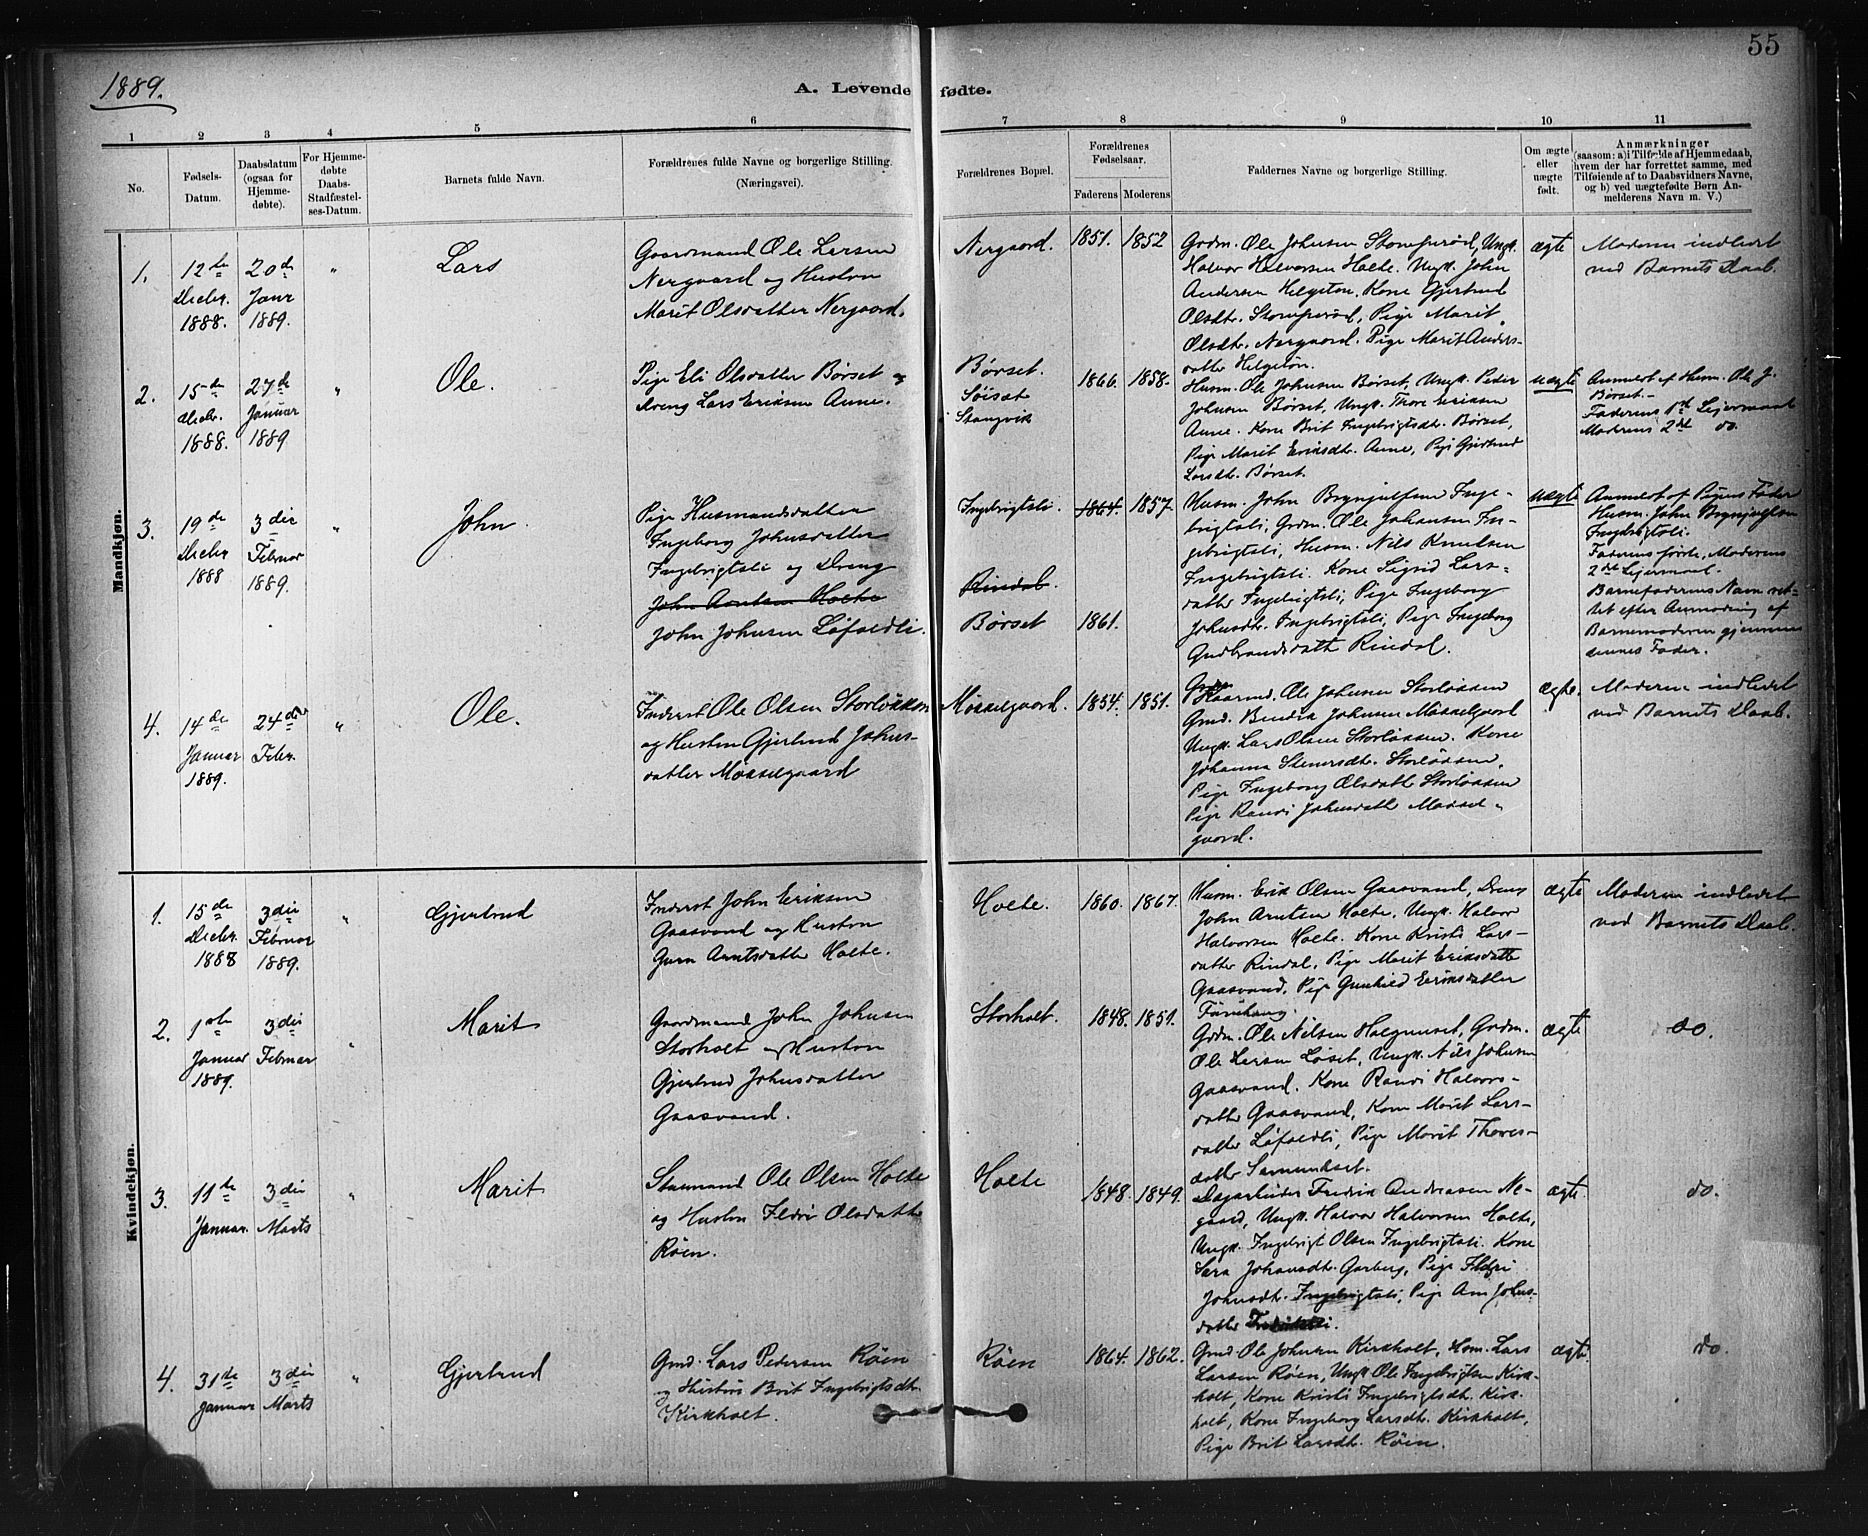 1889.
55
A. Levende fødte.
1 2 3 4 5 6 7 8 9 10 11
No.
Fødsels-Datum.
Daabsdatum (ogsaa for Hjemmedøbte).
For Hjemmedøbte Daabs-Stadfæstelses-Datum.
Barnets fulde Navn.
Forældrenes fulde Navne og borgerlige Stilling.
(Næringsvei).
Forældrenes Bopæl.
Forældrenes Fødselsaar.
Faderens Moderens
Faddernes Navne og borgerlige Stilling.
Om ægte eller uægte født.
Anmærkninger
(saasom: a) i Tilfælde af Hjemmedaab,
hvem der har forrettet samme, med
Tilføiende af to Daabsvidners Navne,
og b) ved uægtefødte Børn Anmelderens Navn m. V.)
Mandkjøn.
1.
12te
Decbr.
1888.
20de
Janr
1889.
"
Lars
Gaardmand Ole Larsen
Nergaard og Hustru
Marit Olsdatter Nergaard.
Nergaard.
1851. 1852
Grdm. Ole Johnsen Stomprød, Ungk.
Halvor Halvorsen Holte. Ungk. John
Andersen Helgetøn. Kone Gjertrud
Olsdtr. Stomprød, Pige Marit
Olsdtr. Nergaard. Pige Marit Anders-
datter Helgetøn.
ægte
Moderen indledet
ved Barnets Daab.
2.
15de
Decbr.
1888.
27de
Januar
1889
"
Ole.
Pige Eli Olsdatter Børset og
Dreng Lars Eriksen Aune.
Børset.
Søisæt
i Stangvik
1866. 1858.
Husm. Ole Johnsen Børset, Ungk. Peder
Johnsen Børset, Ungk. Thore Eriksen
Aune. Kone Brit Ingebrigtsdtr. Børset,
Pige Marit Eriksdtr. Aune, Pige Gjertrud
Larsdtr. Børset.
uægte
Anmeldt af Husm. Ole J.
Børset.-
Faderens 1ste Leiermaal
Moderens 2det do.
3.
19de
Decbr
1888
3die
Februar
1889.
"
John
Pige Husmandsdatter
Ingeborg Johnsdatter
Ingebrigtsli og Dreng
John Arntsen Holte
John Johnsen Løfaldli.
Ingebrigtsli.
Rindal.
Børset
1864. 1857.
1861.
Husm. John Brynjulfsen Inge-
brigtsli, Grdm. Ole Johansen In-
gebrigtsli, Husm. Nils Knudsen
Ingebrigtsli. Kone Sigrid Lars-
datter Ingebrigtsli, Pige Ingeborg
Johnsdtr. Ingebrigtsli, Pige Ingeborg
Gudbrandsdatt Rindal.
uægte
Anmeldt af Pigens Fader
Husm. John Brynjulfsen
Ingebrigtsli.
Faderens første, Moderens
2det Leiermaal.
Barnefaderens Navn ret-
tet efter Anmodning af
Barnemoderen gjennem
dennes Fader.
4.
14de
Januar
1889.
24de
Febr.
"
Ole.
Inderst Ole Olsen Storløkken
og Hustru Gjertrud Johns-
datter Mosselgaard
Mosselgaard.
1854. 1851.
Ole Johnsen Storløkken
Gmd. Bendix Johnsen Mosselgaard
Ungk. Lars Olsen Storløkken. Kone
Johanna Stenersdtr. Storløkken,
Pige Ingeborg Olsdatt. Storløkken
Pige Randi Johnsdatt Mossel-
gaard.
ægte.
Moderen indledet
ved Barnets Daab.
Kvindekjøn.
1.
15de
Decbr.
1888
3die
Februar
1889.
"
Gjertrud
Inderst John Eriksen
Gaasvand og Hustru
Guru Arntsdatter Holte.
Holte.
1860. 1867.
Husm. Erik Olsen Gaasvand, Dreng
John Arntsen Holte, Ungk. Halvor
Halvorsen Holte. Kone Kristi Lars-
datter Rindal, Pige Marit Eriksdatt
Gaasvand, Pige Gunhild Eriksdatter
ægte
Moderen indledet
ved Barnets Daab.
2.
1ste
Januar
1889.
3die
Februar
"
Marit
Gaardmand John Johnsen
Storholt og Hustru
Gjertrud Johnsdatter
Gaasvand.
Storholt.
1848. 1851.
Grdm. Ole Nilsen Halgunset, Grdm.
Ole Larsen Løset, Ungk. Nils Johnsen
Gaasvand. Kone Randi Halvors-
datter Gaasvand, Kone Marit Lars-
datter Løfaldli, Pige Marit Thores-
datter
ægte
do.
3.
11te
Januar.
3die
Marts
"
Marit
Ole Olsen Holte
og Hustru Ildri Olsdatt.
Røen.
Holte
1848. 1849.
Dagarbeider Fredrik Andreasen Ne-
gaard, Ungk. Halvor Halvorsen Holte,
Ungk. Ingebrigt Olsen Ingebrigtsli. Kone
Sara Johansdtr. Garberg, Pige Ildri
Johnsdtr. Ingebrigtsli, Pige Ane Johns-
datter
ægte.
do.
4.
31te
Januar
3die
Marts
"
Gjertrud
Gmd. Lars Pedersen Røen
og Hustru Brit Ingebrigtsdtr.
Kirkholt.
Røen
1864. 1862.
Gmd. Ole Johnsen Kirkholt, Lars
Larsen Røen, Ungk Ole Ingebrigtsen Kirk-
holt, Kone Kristi Ingebrigtsdt. Kirk-
holt, Kone Ingeborg Larsdt. Kirkholt,
Pige Brit Larsdt. Røen.
ægte.
do.